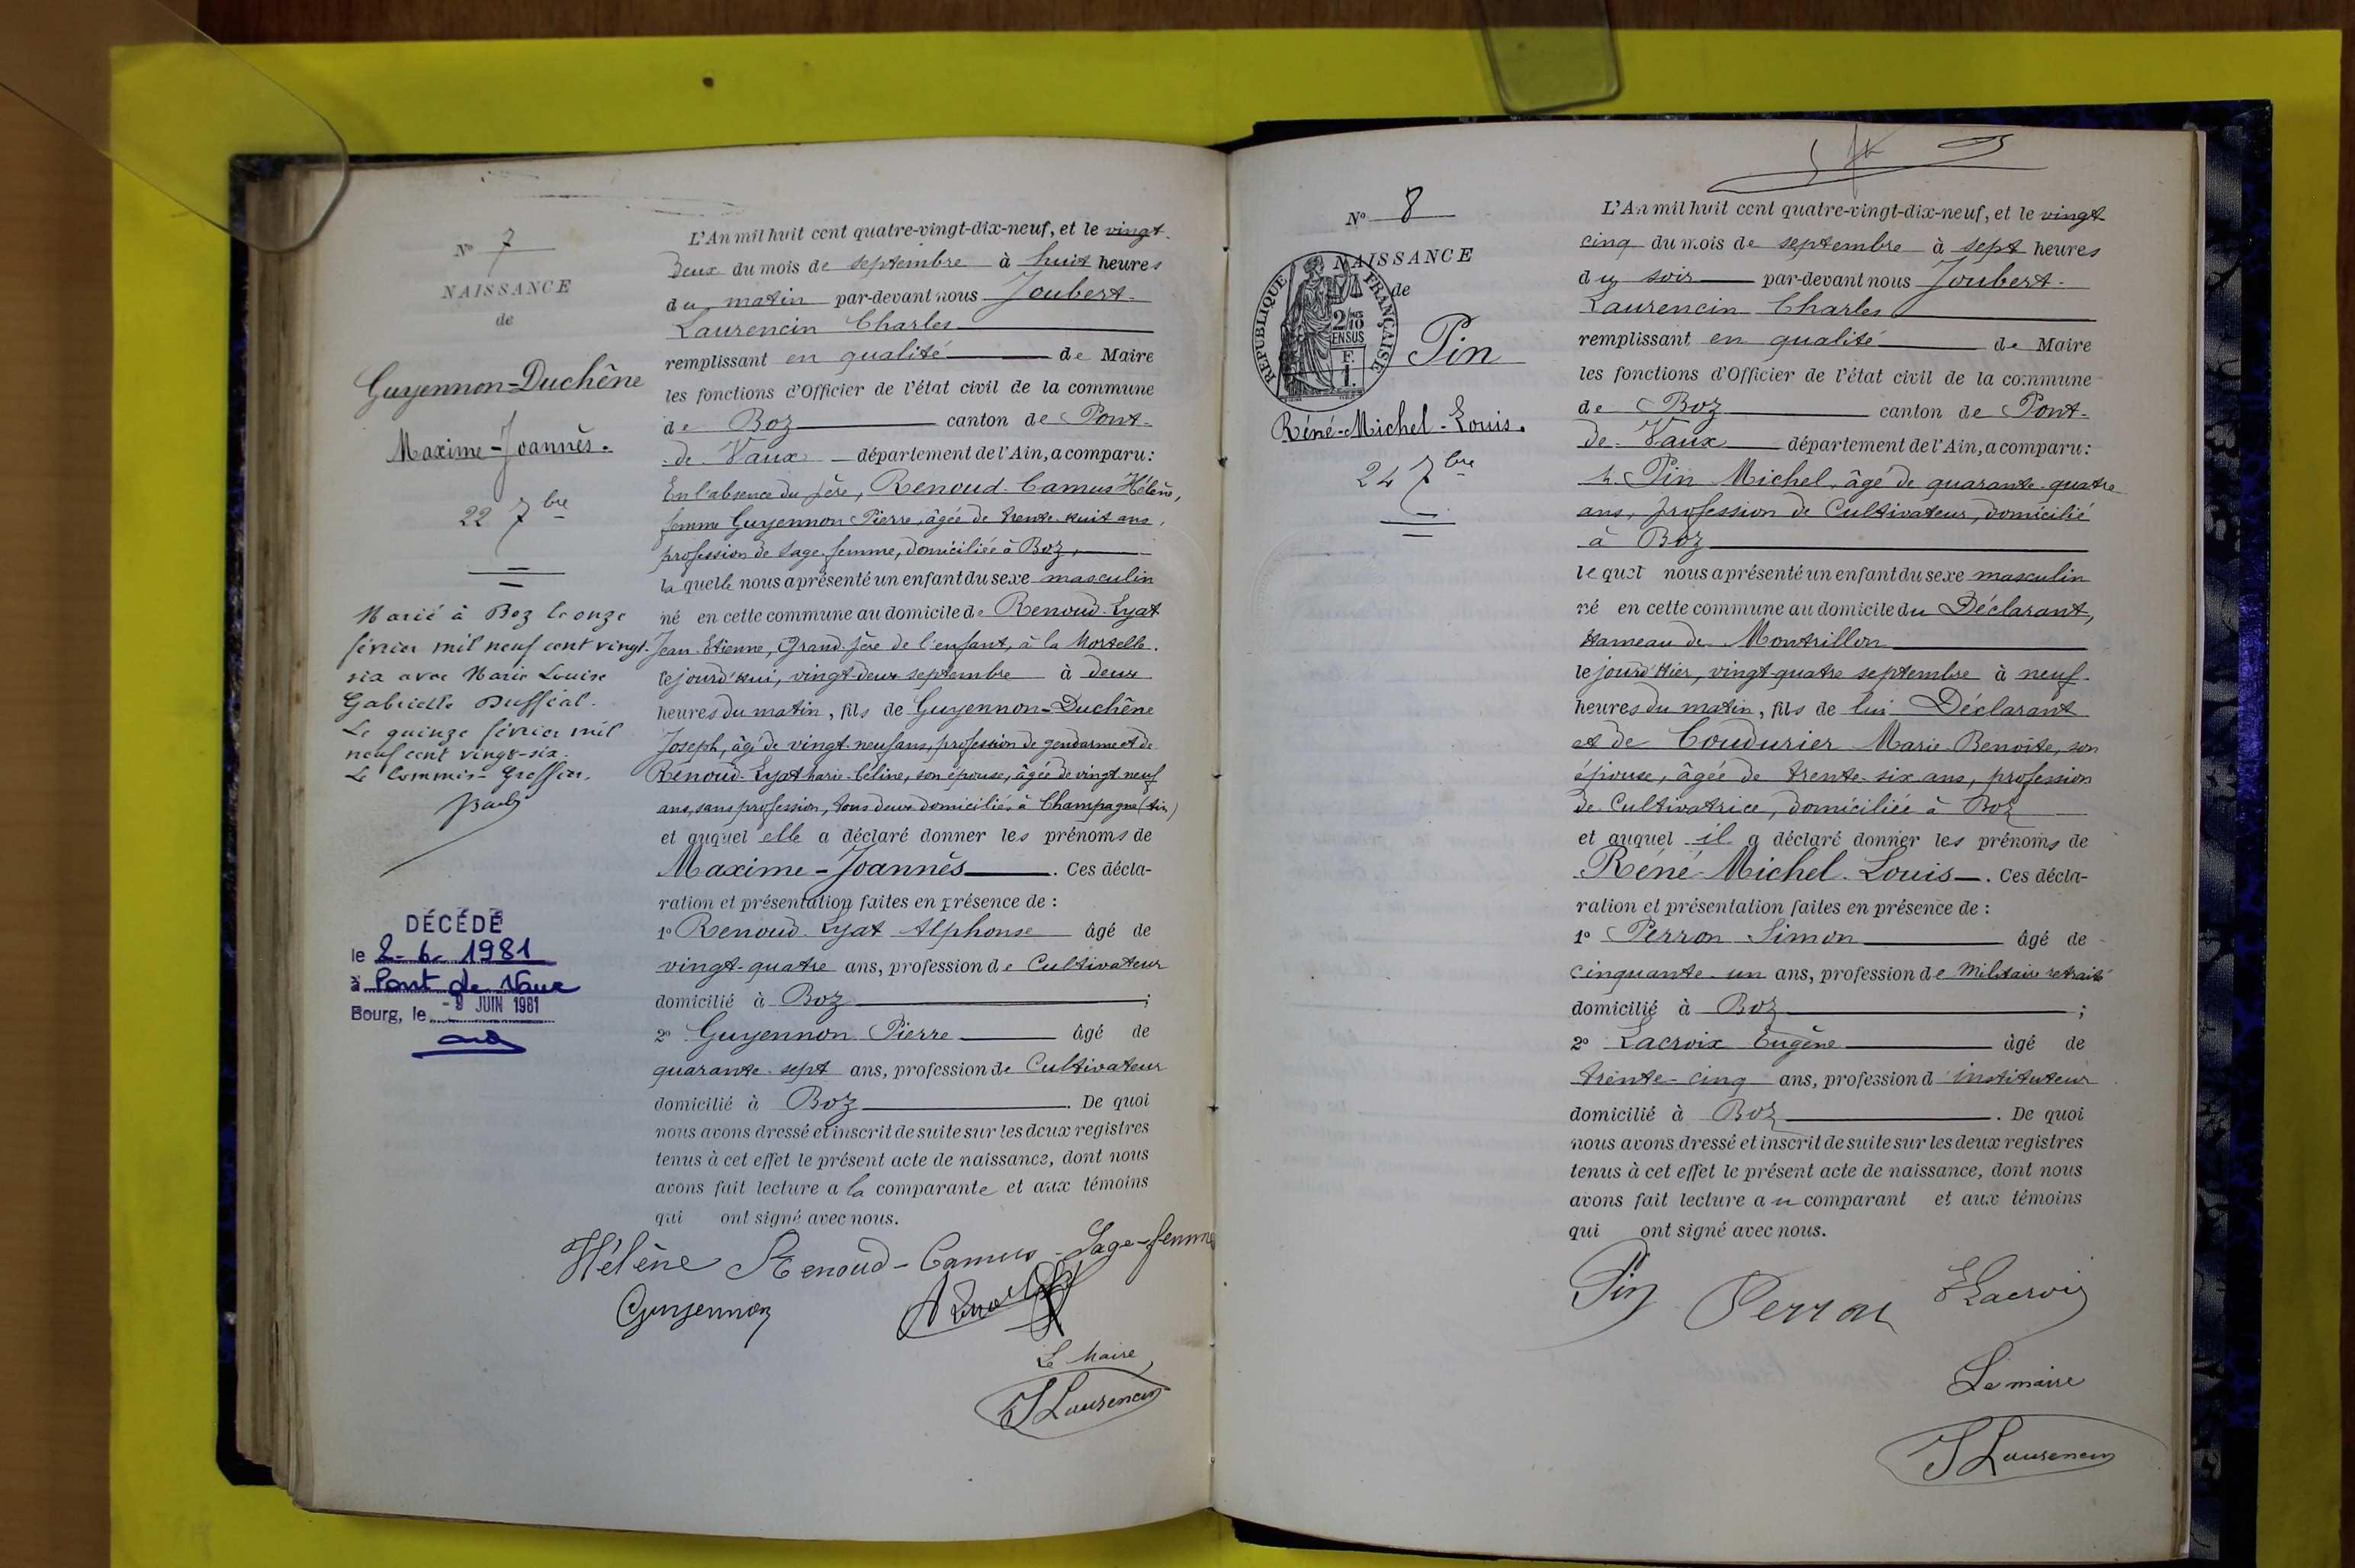 N° 7
NAISSANCE
de
Guyennon-Duchêne
Maxime-Joannès.
22 7bre
Marié à Boz le onze
février mil neuf cent vingt-
six avec Marie Louise
Gabrielle
Le quinze février mil
neuf cent vingt-six.
Le Commis-Greffier,
DÉCÉDÉ
le 2-6-1981
à Pont de Vaux
Bourg, le - 9 JUIN 1981
L'An mil huit cent quatre-vingt-dix-neuf, et le vingt-
deux du mois de septembre à huit heures
du matin par-devant nous Joubert-
Laurencin Charles
remplissant en qualité de Maire
les fonctions d'Officier de l'état civil de la commune
de Boz canton de Pont-
de Vaux département de l'Ain, a comparu:
En l'absence du père, Renoud-Camus Hélène,
femme Guyennon Pierre, âgée de trente-huit ans,
profession de sage-femme, domiciliée à Boz,
laquelle nous a présenté un enfant du sexe masculin
né en cette commune au domicile de Renoud-Lyat
Jean-Etienne, Grand-père de l'enfant, à la
lejourd'hui, vingt-deux septembre à deux
heures du matin, fils de Guyennon-Duchêne
Joseph, âgé de vingt-neuf ans, profession de gendarme et de
Renoud-Lyat Marie-Céline, son épouse, âgée de vingt-neuf
ans, sans profession, tous deux domiciliés à Champagne (Ain)
et auquel elle a déclaré donner les prénoms de
Maxime-Joannès. Ces décla-
ration et présentation faites en présence de :
1° Renoud-Lyat Alphonse âgé de
vingt-quatre ans, profession de Cultivateur
domicilié à Boz ;
2° Guyennon Pierre âgé de
quarante-sept ans, profession de Cultivateur
domicilié à Boz. De quoi
nous avons dressé et inscrit de suite sur les deux registres
tenus à cet effet le présent acte de naissance, dont nous
avons fait lecture a la comparante et aux témoins
qui ont signé avec nous.
Hélène Renoud-Camus-Sage-femme
Guyennon
Le Maire
J Laurencin
N° 8
NAISSANCE
de
RÉPUBLIQUE FRANÇAISE
2/10 EN SUS
F.
1.
Pin
Réné-Michel-Louis.
24 7bre
L'An mil huit cent quatre-vingt-dix-neuf, et le vingt
cinq du mois de septembre à sept heures
du soir par-devant nous Joubert-
Laurencin Charles
remplissant en qualité de Maire
les fonctions d'Officier de l'état civil de la commune
de Boz canton de Pont-
de-Vaux département de l'Ain, a comparu:
Pin Michel, âgé de quarante-quatre
ans, profession de Cultivateur, domicilié
à Boz
lequel nous a présenté un enfant du sexe masculin
né en cette commune au domicile du Déclarant,
Hameau de Montrillon
lejourd'Hier, vingt-quatre septembre à neuf
heures du matin, fils de lui Déclarant
et de Coudurier Marie-Benoîte, son
épouse, âgée de trente-six ans, profession
de Cultivatrice, domiciliée à Boz
et auquel il a déclaré donner les prénoms de
Réné-Michel-Louis. Ces décla-
ration et présentation faites en présence de :
1° Perron Simon âgé de
cinquante-un ans, profession de Militaire retraité
domicilié à Boz ;
2° Lacroix Eugène âgé de
trente-cinq ans, profession d'instituteur
domicilié à Boz. De quoi
nous avons dressé et inscrit de suite sur les deux registres
tenus à cet effet le présent acte de naissance, dont nous
avons fait lecture au comparant et aux témoins
qui ont signé avec nous.
Pin Perron E Lacroix
Le maire
J Laurencin